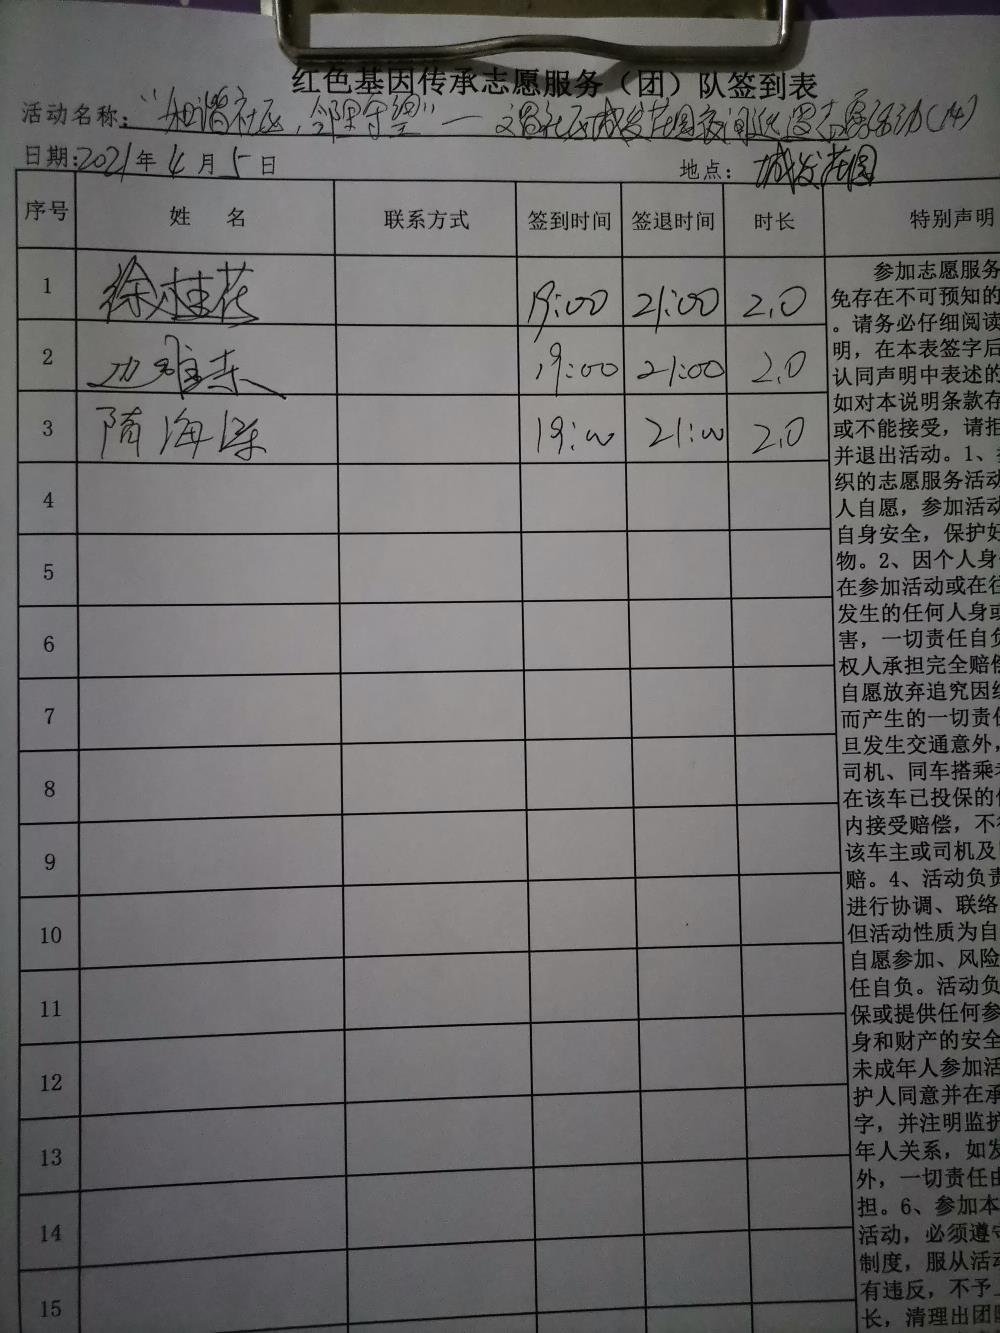 红色基因传承志愿服务（团）队签到表
活动名称：“和谐社区，邻里守望”—文遇社区城发花园夜间巡逻志愿活动(14)
日期：2021年4月5日 地点：城发花园
序号 姓 名 联系方式 签到时间 签退时间 时长 特别声明
1 徐桂花 19:00 21:00 2.0
2 19:00 21:00 2.0
3 隋海 19:00 21:00 2.0
4
5
6
7
8
9
10
11
12
13
14
15
参加志愿服务
免存在不可预知的
。请务必仔细阅读
明，在本表签字后
认同声明中表述的
如对本说明条款存
或不能接受，请拒
并退出活动。1、
织的志愿服务活动
人自愿，参加活动
自身安全，保护好
物。2、因个人身
在参加活动或在往
发生的任何人身或
害，一切责任自负
权人承担完全赔偿
自愿放弃追究因组
而产生的一切责任
旦发生交通意外，
司机、同车搭乘者
在该车已投保的
内接受赔偿，不得
该车主或司机及
赔。4、活动负责
进行协调、联络
但活动性质为自
自愿参加、风险
任自负。活动负
保或提供任何参
身和财产的安全
未成年人参加活
护人同意并在承
字，并注明监护
年人关系，如发
外，一切责任由
担。6、参加本
活动，必须遵守
制度，服从活动
有违反，不予
长，清理出团队